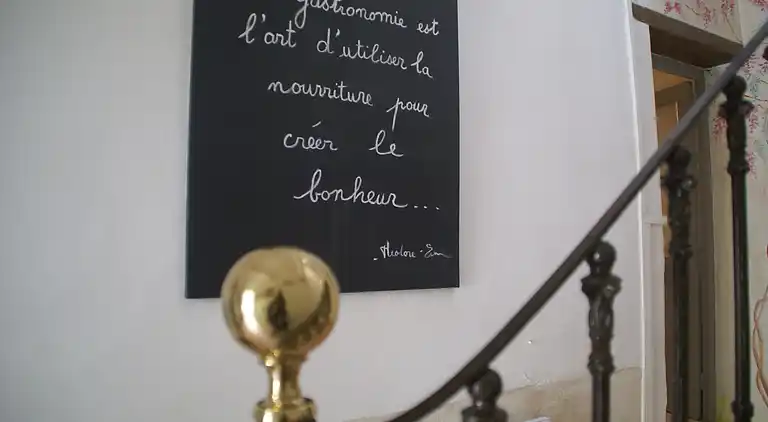 gastronomie est
l'art d'utiliser la
nourriture pour
créer le
bonheur...